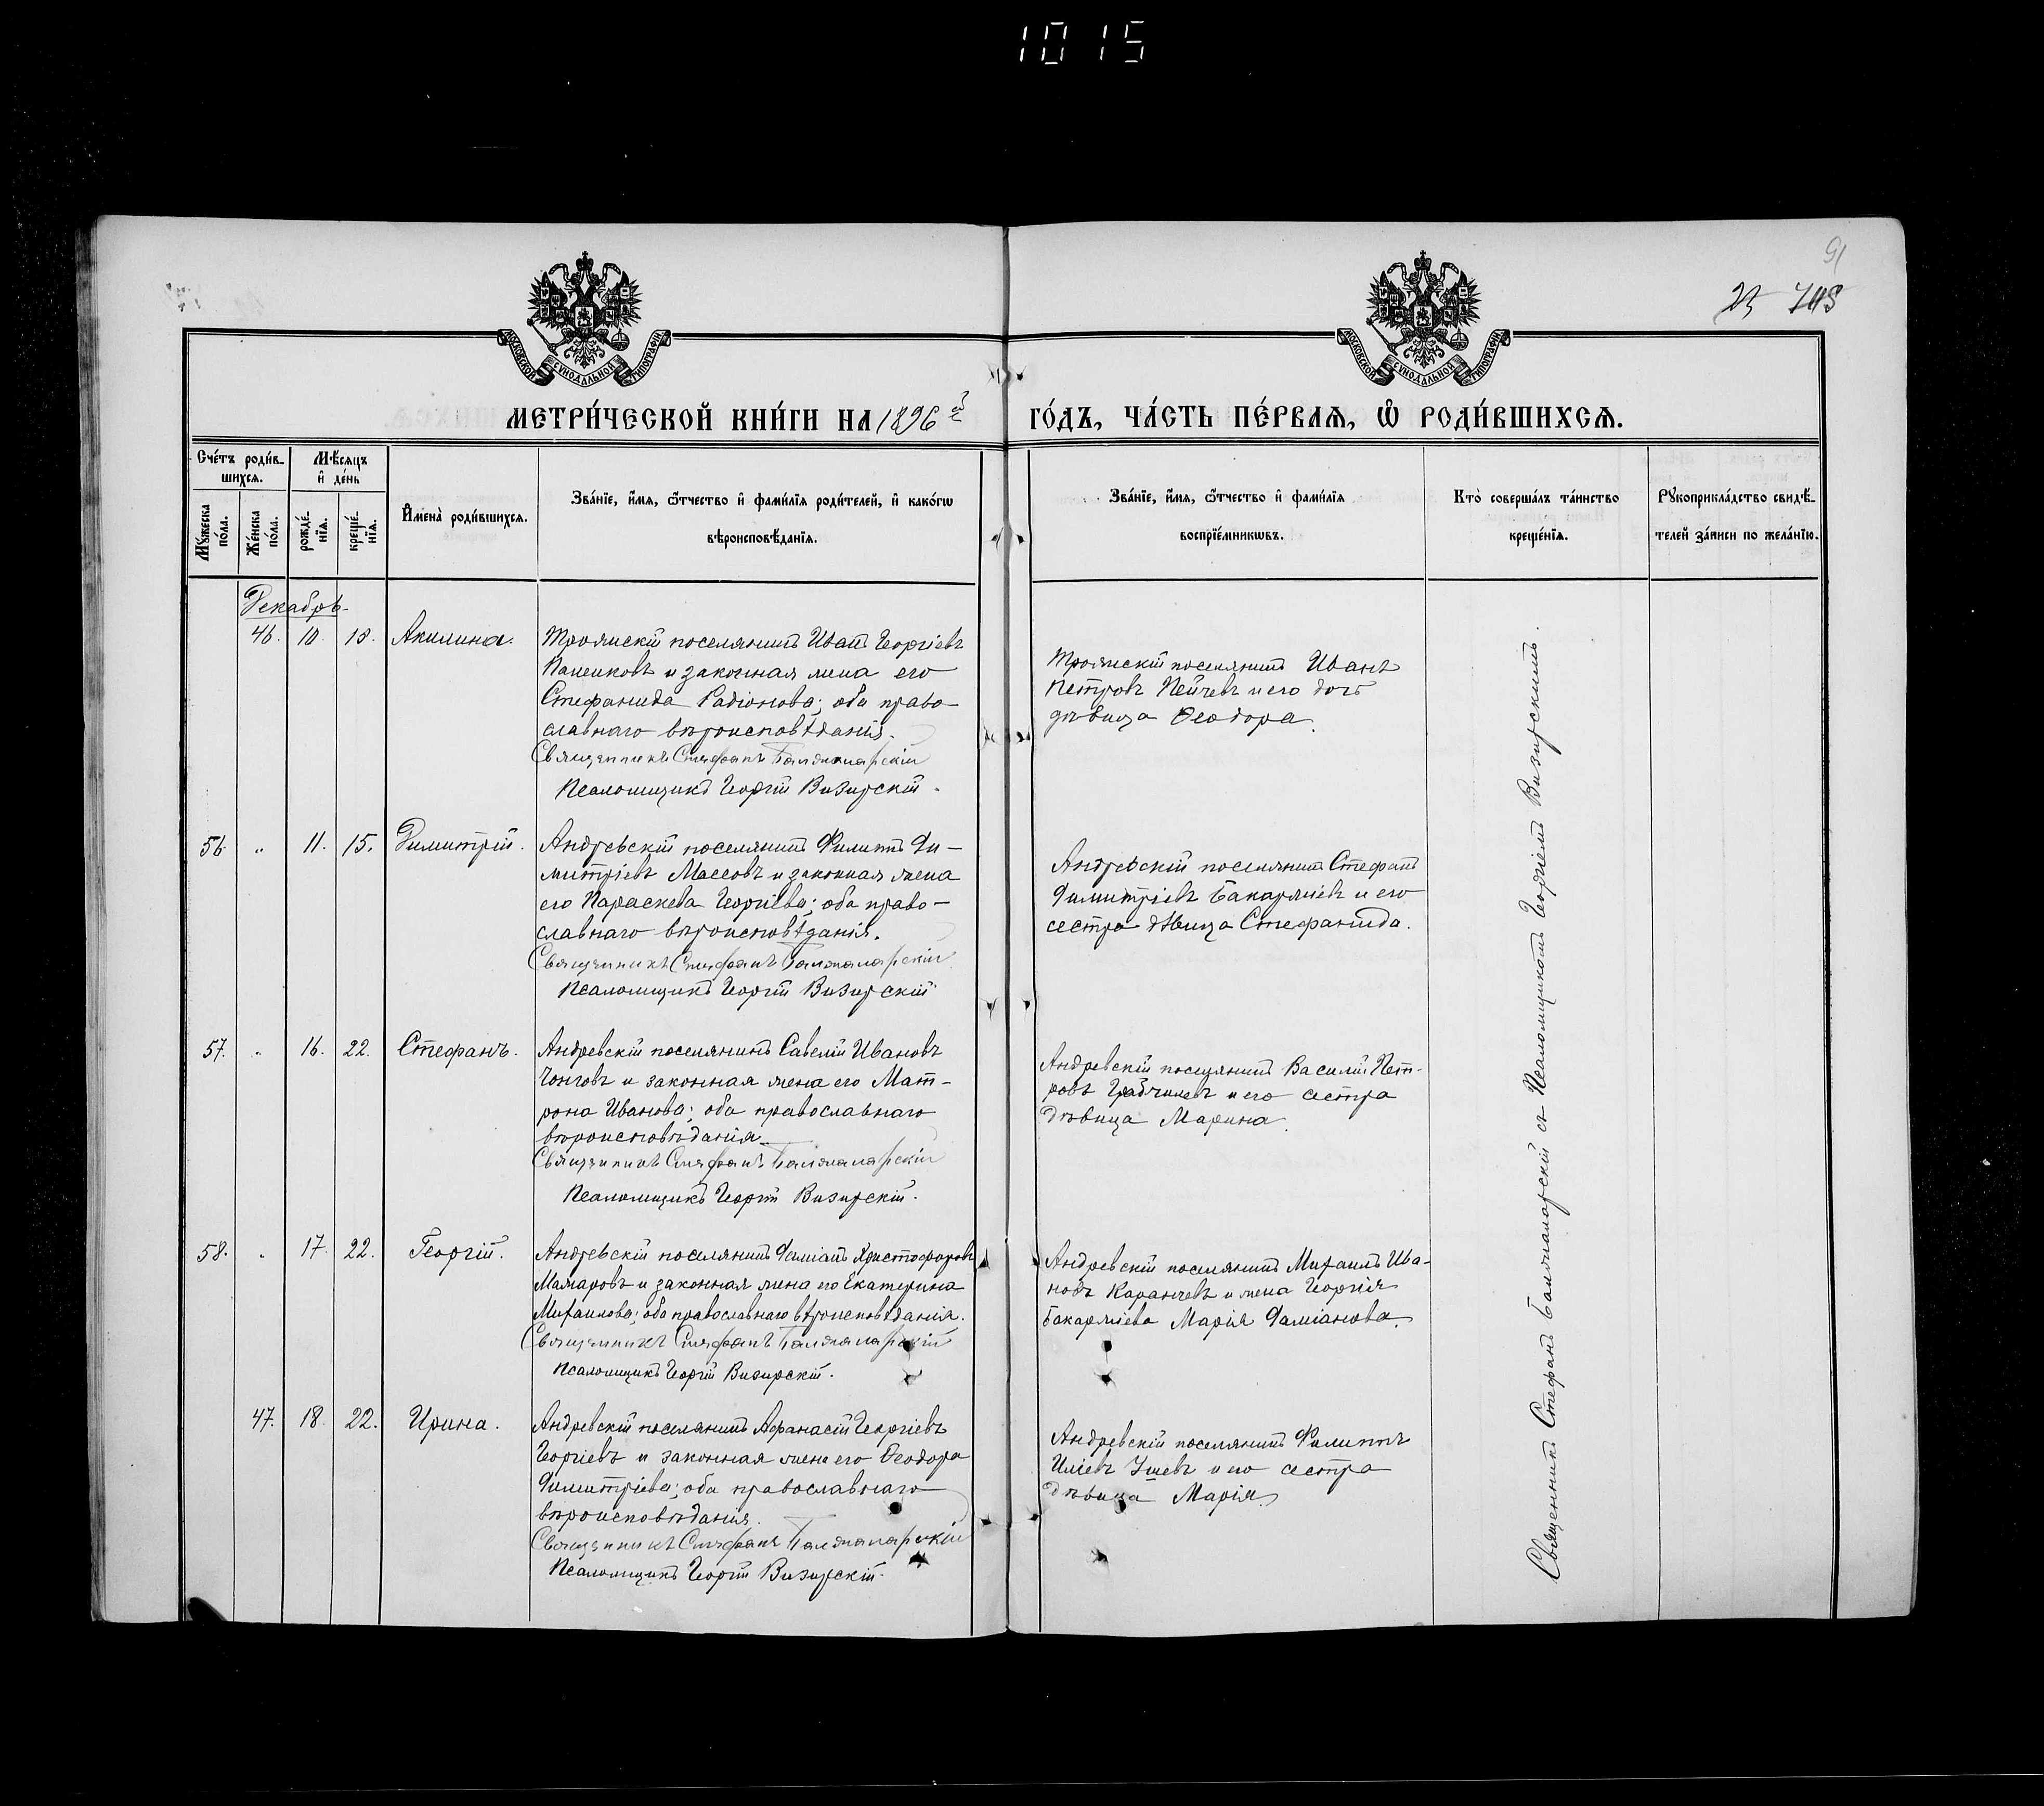 1015
91
23 748
МОСКОВСКОЙ СУНОДАЛЬНОЙ ТИПОГРАФІИ
МОСКОВСКОЙ СУНОДАЛЬНОЙ ТИПОГРАФІИ
МЕТРИ́ЧЕСКОЙ КНИ́ГИ НА 1896й ГО́ДЪ, ЧА́СТЬ ПЕ́РВАЯ, Ѡ РОДИ́ВШИХСЯ.
Сче́тъ роди́в-
шихся.
Мѣ́сяцъ
и де́нь
Мꙋ́жеска по́ла.
Же́нска по́ла.
рожде́-
нїя.
креще́-
нїя.
Имена̀ роди́вшихся.
Зва́нїе, и́мя, ѻ́тчество и фами́лїя роди́телей, и како́гѡ
вѣроисповѣ́данїя.
Зва́нїе, и́мя, ѻ́тчество и фами́лїя
воспрїе́мникѡвъ.
Кто̀ соверша́лъ та́инство
креще́нїя.
Рꙋкоприкла́дство свидѣ́-
телей за́писи по жела́нїю.
Декабрь
46. 10. 13. Акилина.
Троянскій поселянинъ Иванъ Георгіевъ
и законная жена его
Стефанида Радіонова; оба право-
славнаго вѣроисповѣданія.
Священникъ Стефанъ Балжаларскій
Псаломщикъ Георгій Визирскій.
Троянскій поселянинъ Иванъ
Петровъ Пейчевъ и его дочь
дѣвица Ѳеодора.
56. „ 11. 15. Димитрій.
Андревскій поселянинъ Филиппъ Ди-
митріевъ Массовъ и законная жена
его Параскева Георгіева; оба право-
славнаго вѣроисповѣданія.
Священникъ Стефанъ Балжаларскій
Псаломщикъ Георгій Визирскій
Андревскій поселянинъ Стефанъ
Димитріевъ Бакаржіевъ и его
сестра дѣвица Стефанида.
57. „ 16. 22. Стефанъ.
Андревскій поселянинъ Савелій Ивановъ
Чонговъ и законная жена его Мат-
рона Иванова; оба православнаго
вѣроисповѣданія.
Священникъ Стефанъ Балжаларскій
Псаломщикъ Георгій Визирскій.
Андревскій поселянинъ Василій Пет-
ровъ и его сестра
дѣвица Марина.
58. „ 17. 22. Георгій.
Андревскій поселянинъ Даміанъ Христофоровъ
Мамаровъ и законная жена его Екатерина
Михаилова; оба православнаго вѣроисповѣданія.
Священникъ Стефанъ Балжаларскій
Псаломщикъ Георгій Визирскій.
Андревскій поселянинъ Михаилъ Ива-
новъ Каранчевъ и жена Георгія
Бакаржіева Марія Даміанова.
47. 18. 22. Ирина.
Андревскій поселянинъ Аѳанасій Георгіевъ
Георгіевъ и законная жена его Ѳеодора
Димитріева; оба православнаго
вѣроисповѣданія.
Священникъ Стефанъ Балжаларскій
Псаломщикъ Георгій Визирскій.
Андревскій поселянинъ Филиппъ
Иліевъ и его сестра
дѣвица Марія.
Священникъ Стефанъ Балжаларскій съ Псаломщикомъ Георгіемъ Визирскимъ.